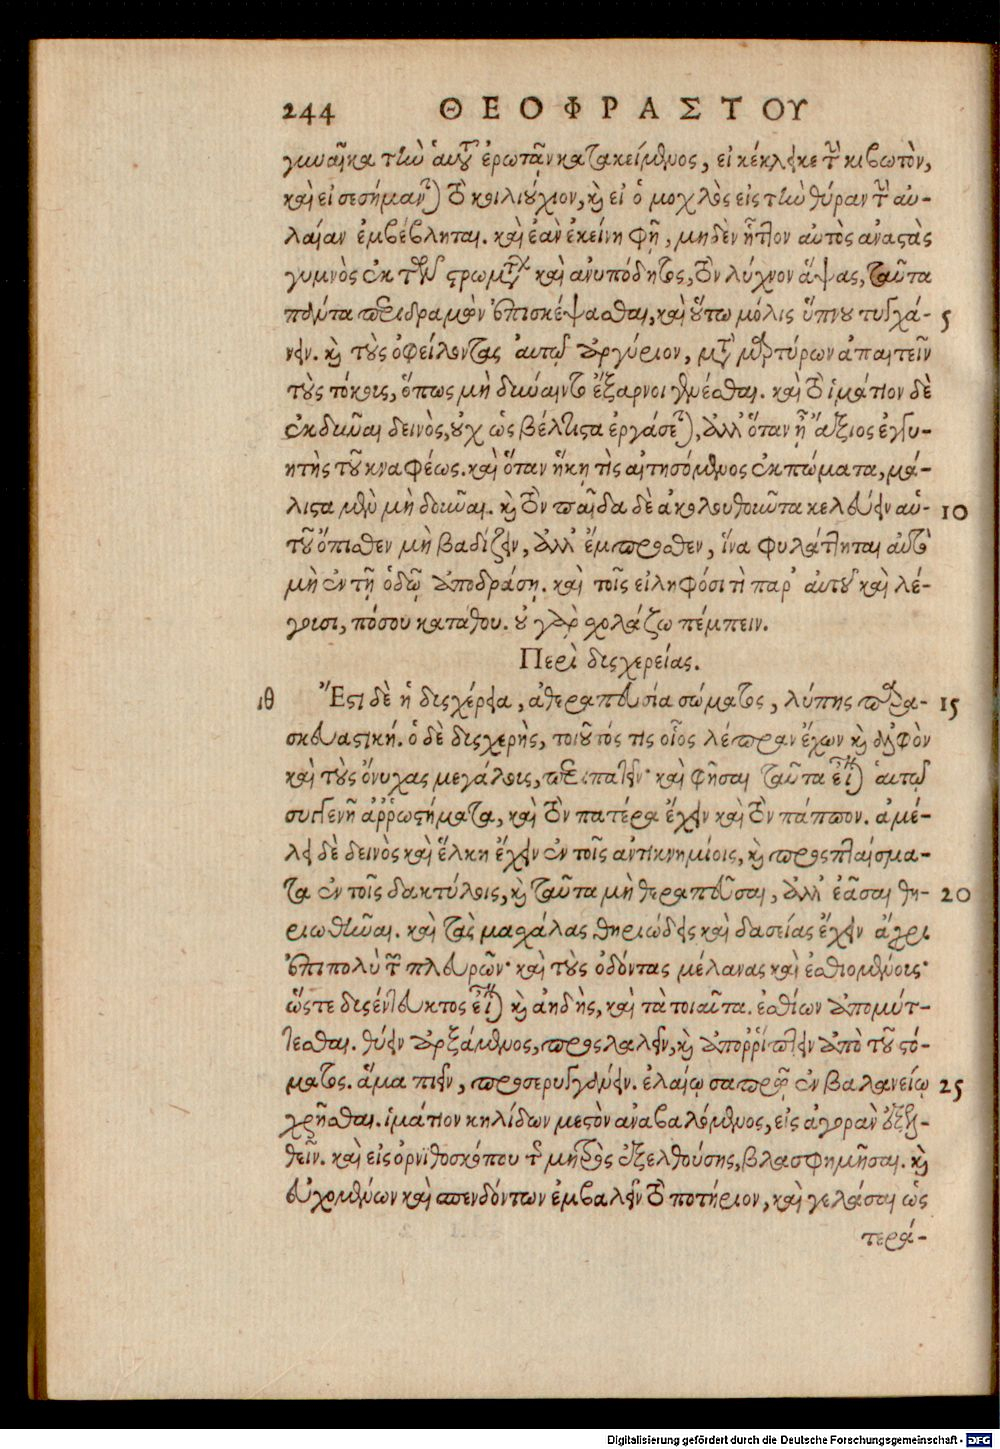 244 ΘΕΟΦΡΑΣΤΟΥ
γυναῖκα τὴν αὑτοῦ ἐρωτᾷν κατακείμενος, εἰ κέκλεικε τὴν κιβωτὸν,
καὶ εἰ σεσήμανται τὸ κοιλιούχιον, καὶ εἰ ὁ μοχλὸς εἰς τὴν θύραν τὴν αὐ-
λαίαν ἐμβέβληται. καὶ ἐὰν ἐκείνη φῇ, μηδὲν ἧττον αὐτὸς ἀναστὰς
γυμνὸς ἐκ τῶν στρωμάτων καὶ ἀνυπόδητος, τὸν λύχνον ἅψας, ταῦτα
πάντα περιδραμὼν ἐπισκέψασθαι, καὶ οὕτω μόλις ὕπνου τυγχά- 5
νειν. καὶ τοὺς ὀφείλοντας αὐτῷ ἀργύριον, μετὰ μαρτύρων ἀπαιτεῖν
τοὺς τόκους, ὅπως μὴ δύναιντο ἔξαρνοι γενέσθαι. καὶ τὸ ἱμάτιον δὲ
ἐκδοῦναι δεινὸς, οὐχ ὡς βέλτιστα ἐργάσεται, ἀλλ' ὅταν ᾖ ἄξιος ἐγγυ-
ητὴς τοῦ κναφέως. καὶ ὅταν ἥκῃ τὶς αἰτησόμενος ἐκπώματα, μά-
λιστα μὲν μὴ δοῦναι. καὶ τὸν παῖδα δὲ ἀκολουθοῦντα κελεύειν αὑ- 10
τοῦ ὄπισθεν μὴ βαδίζειν, ἀλλ' ἔμπροσθεν, ἵνα φυλάττηται αὐτὸ
μὴ ἐν τῇ ὁδῷ ἀποδράσῃ. καὶ τοῖς εἰληφόσι τὶ παρ' αὐτοῦ καὶ λέ-
γουσι, πόσου κατάθου. οὐ γὰρ σχολάζω πέμπειν.
Περὶ δυςχερείας.
ιθ Ἔστι δὲ ἡ δυςχέρεια, ἀθεραπευσία σώματος, λύπης παρα- 15
σκευαστική. ὁ δὲ δυςχερὴς, τοιοῦτός τις οἷος λέπραν ἔχων καὶ ἀλφὸν
καὶ τοὺς ὄνυχας μεγάλους, περιπατεῖν· καὶ φῆσαι ταῦτα εἶναι αὑτῷ
συγγενῆ ἀῤῥωστήματα, καὶ τὸν πατέρα ἔχειν καὶ τὸν πάππον. ἀμέ-
λει δὲ δεινὸς καὶ ἕλκη ἔχειν ἐν τοῖς ἀντικνημίοις, καὶ προςπταίσμα-
τα ἐν τοῖς δακτύλοις, καὶ ταῦτα μὴ θεραπεῦσαι, ἀλλ' ἐᾶσαι θη- 20
ριωθῆναι. καὶ τὰς μασχάλας θηριώδεις καὶ δασείας ἔχειν ἄχρι
ἐπιπολὺ τῶν πλευρῶν· καὶ τοὺς ὀδόντας μέλανας καὶ ἐσθιομένους·
ὥστε δυςέντευκτος εἶναι καὶ ἀηδὴς, καὶ τὰ τοιαῦτα. ἐσθίων ἀπομύτ-
τεσθαι. θύειν ἀρξάμενος, προςλαλεῖν, καὶ ἀποῤῥίπτειν ἀπὸ τοῦ στό-
ματος. ἅμα πιεῖν, προσερυγγάνειν. ἐλαίῳ σαπρῷ ἐν βαλανείῳ 25
χρῆσθαι. ἱμάτιον κηλίδων μεστὸν ἀναβαλόμενος, εἰς ἀγορὰν ἐξελ-
θεῖν. καὶ εἰς ὀρνιθοσκόπου τῆς μητρὸς ἐξελθούσης, βλασφημῆσαι. καὶ
εὐχομένων καὶ σπενδόντων ἐμβαλεῖν τὸ ποτήριον, καὶ γελάσαι ὡς
τερά-
Digitalisierung gefördert durch die Deutsche Forschungsgemeinschaft - DFG